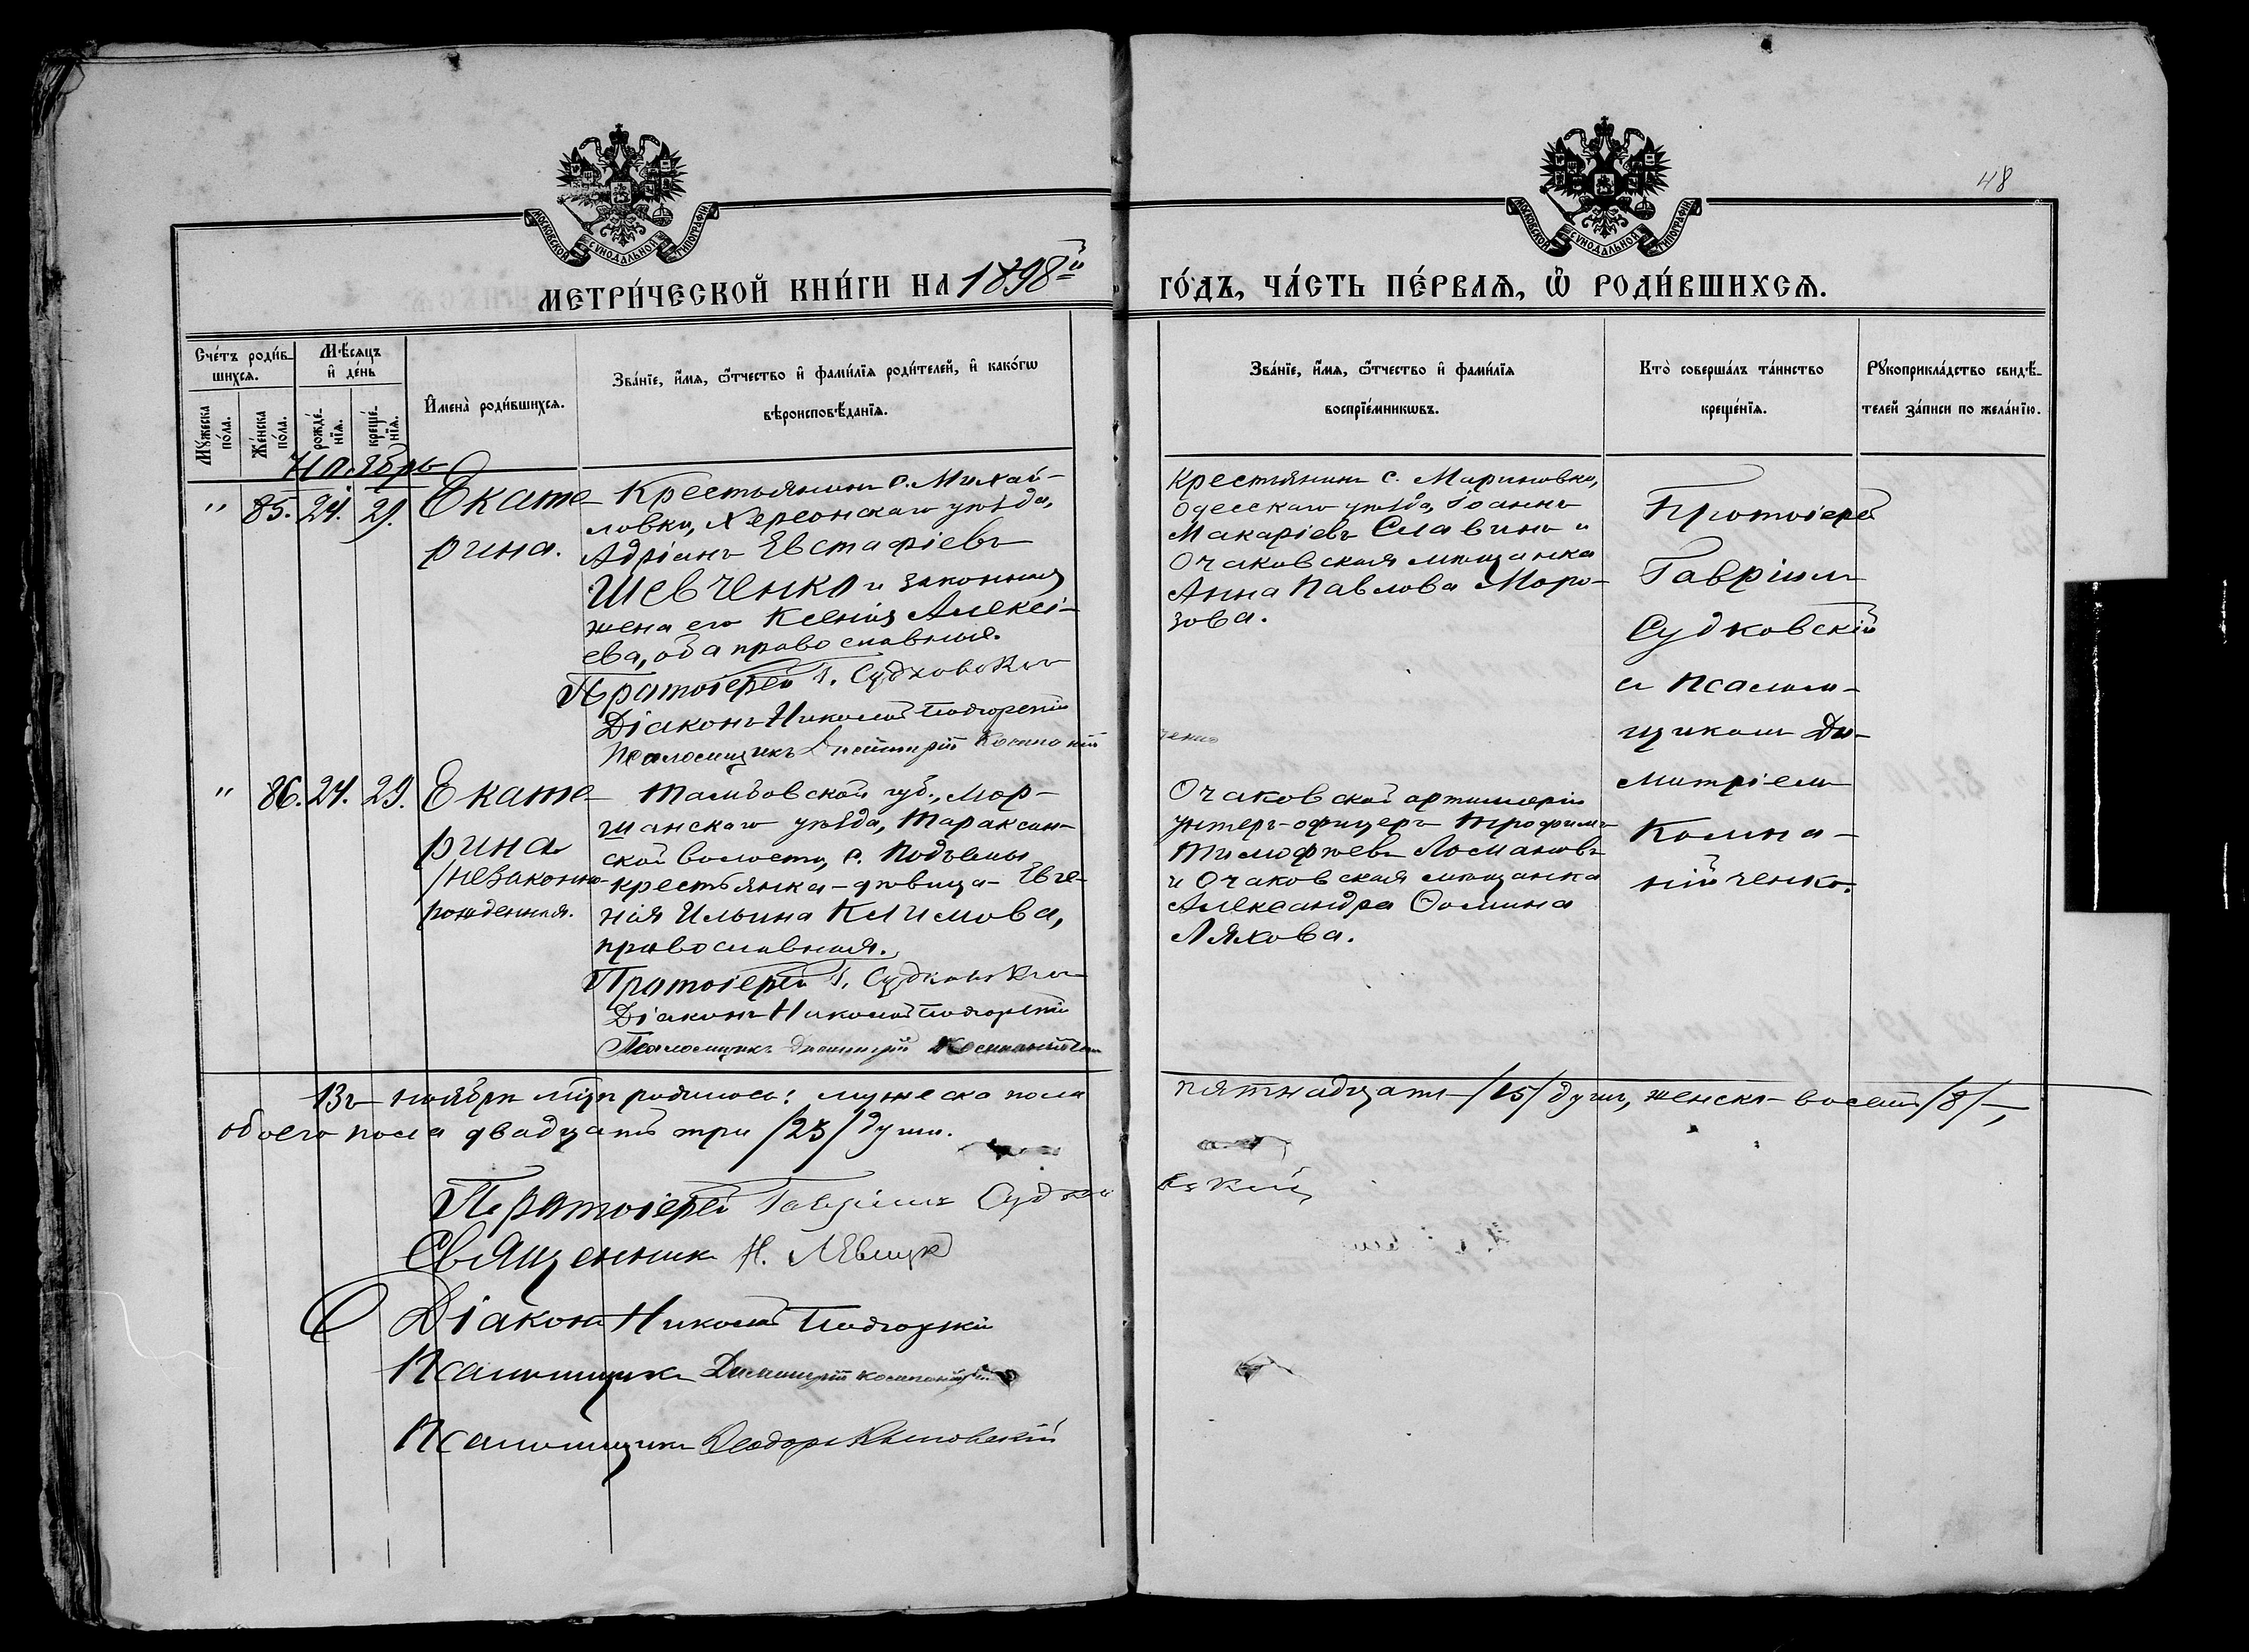 48
МОСКОВСКОЙ СУНОДАЛЬНОЙ ТИПОГРАФІИ.
МОСКОВСКОЙ СУНОДАЛЬНОЙ ТИПОГРАФІИ.
МЕТРИ́ЧЕСКОЙ КНИ́ГИ НА 1898й ГО́ДЪ, ЧА́СТЬ ПЕ́РВАѦ, Ѿ РОДИ́ВШИХСѦ.
Сче́тъ роди́в-
шихсѧ.
Мꙋ́жеска по́ла.
Же́нска по́ла.
Мѣ́сѧцъ
и҆ де́нь
рожде́-
нїѧ.
креще́-
нїѧ.
И҆мена̀ роди́вшихсѧ.
Зва́нїе, и҆́мѧ, ѻ҆́тчество и҆ фами́лїѧ роди́телей, и҆ како́гѡ
вѣроисповѣ́данїѧ.
Зва́нїе, и҆́мѧ, ѻ҆́тчество и҆ фами́лїѧ
воспрїе́мникѡвъ.
Кто̀ соверша́лъ та́инство
креще́нїѧ.
Рꙋкоприкла́дство свидѣ́-
телей за́писи по жела́нїю.
Ноябрь
" 85. 24. 29.
Екате-
рина.
Крестьянинъ с. Михай-
ловки, Херсонскаго уѣзда,
Адріанъ Евстафіевъ
Шевченко и законная
жена его Ксенія Алексі-
ева, оба православные.
Протоіерей Г. Судковскій
Діаконъ Николай Подгорскій
Псаломщикъ Димитрій Компаній
ченко
Крестьянинъ с. Мариновки,
Одесскаго уѣзда, Іоаннъ
Макаріевъ Славинъ и
Очаковская мѣщанка
Анна Павлова Моро-
зова.
Протоіерей
Гавріилъ
Судковскій
съ псалом-
щикомъ Ди-
митріемъ
Компа-
нійченко.
" 86. 24. 29.
Екате-
рина
/незаконно-
рожденная.
Тамбовской губ., Мор-
шанскаго уѣзда, Тараксин-
ской волости, с. Подъемы
крестьянка-дѣвица Евге-
нія Ильина Климова,
православная.
Протоіерей Г. Судковскій
Діаконъ Николай Подгорскій
Псаломщикъ Димитрій Компанійченко
Очаковской артиллеріи
унтеръ-офицеръ Трофимъ
Тимофѣевъ Ломановъ
и Очаковская мѣщанка
Александра Ѳомина
Ляхова.
Въ ноябрѣ м-цѣ родилось: мужеска пола пятнадцать /15/ душъ, женска восемь /8/,
обоего пола двадцать три /23/ души.
Протоіерей Гавріилъ Судковскій
Священникъ Н. Левицкій
Діаконъ Николай Подгорскій
Псаломщикъ Димитрій Компанійченко
Псаломщикъ Ѳеодоръ